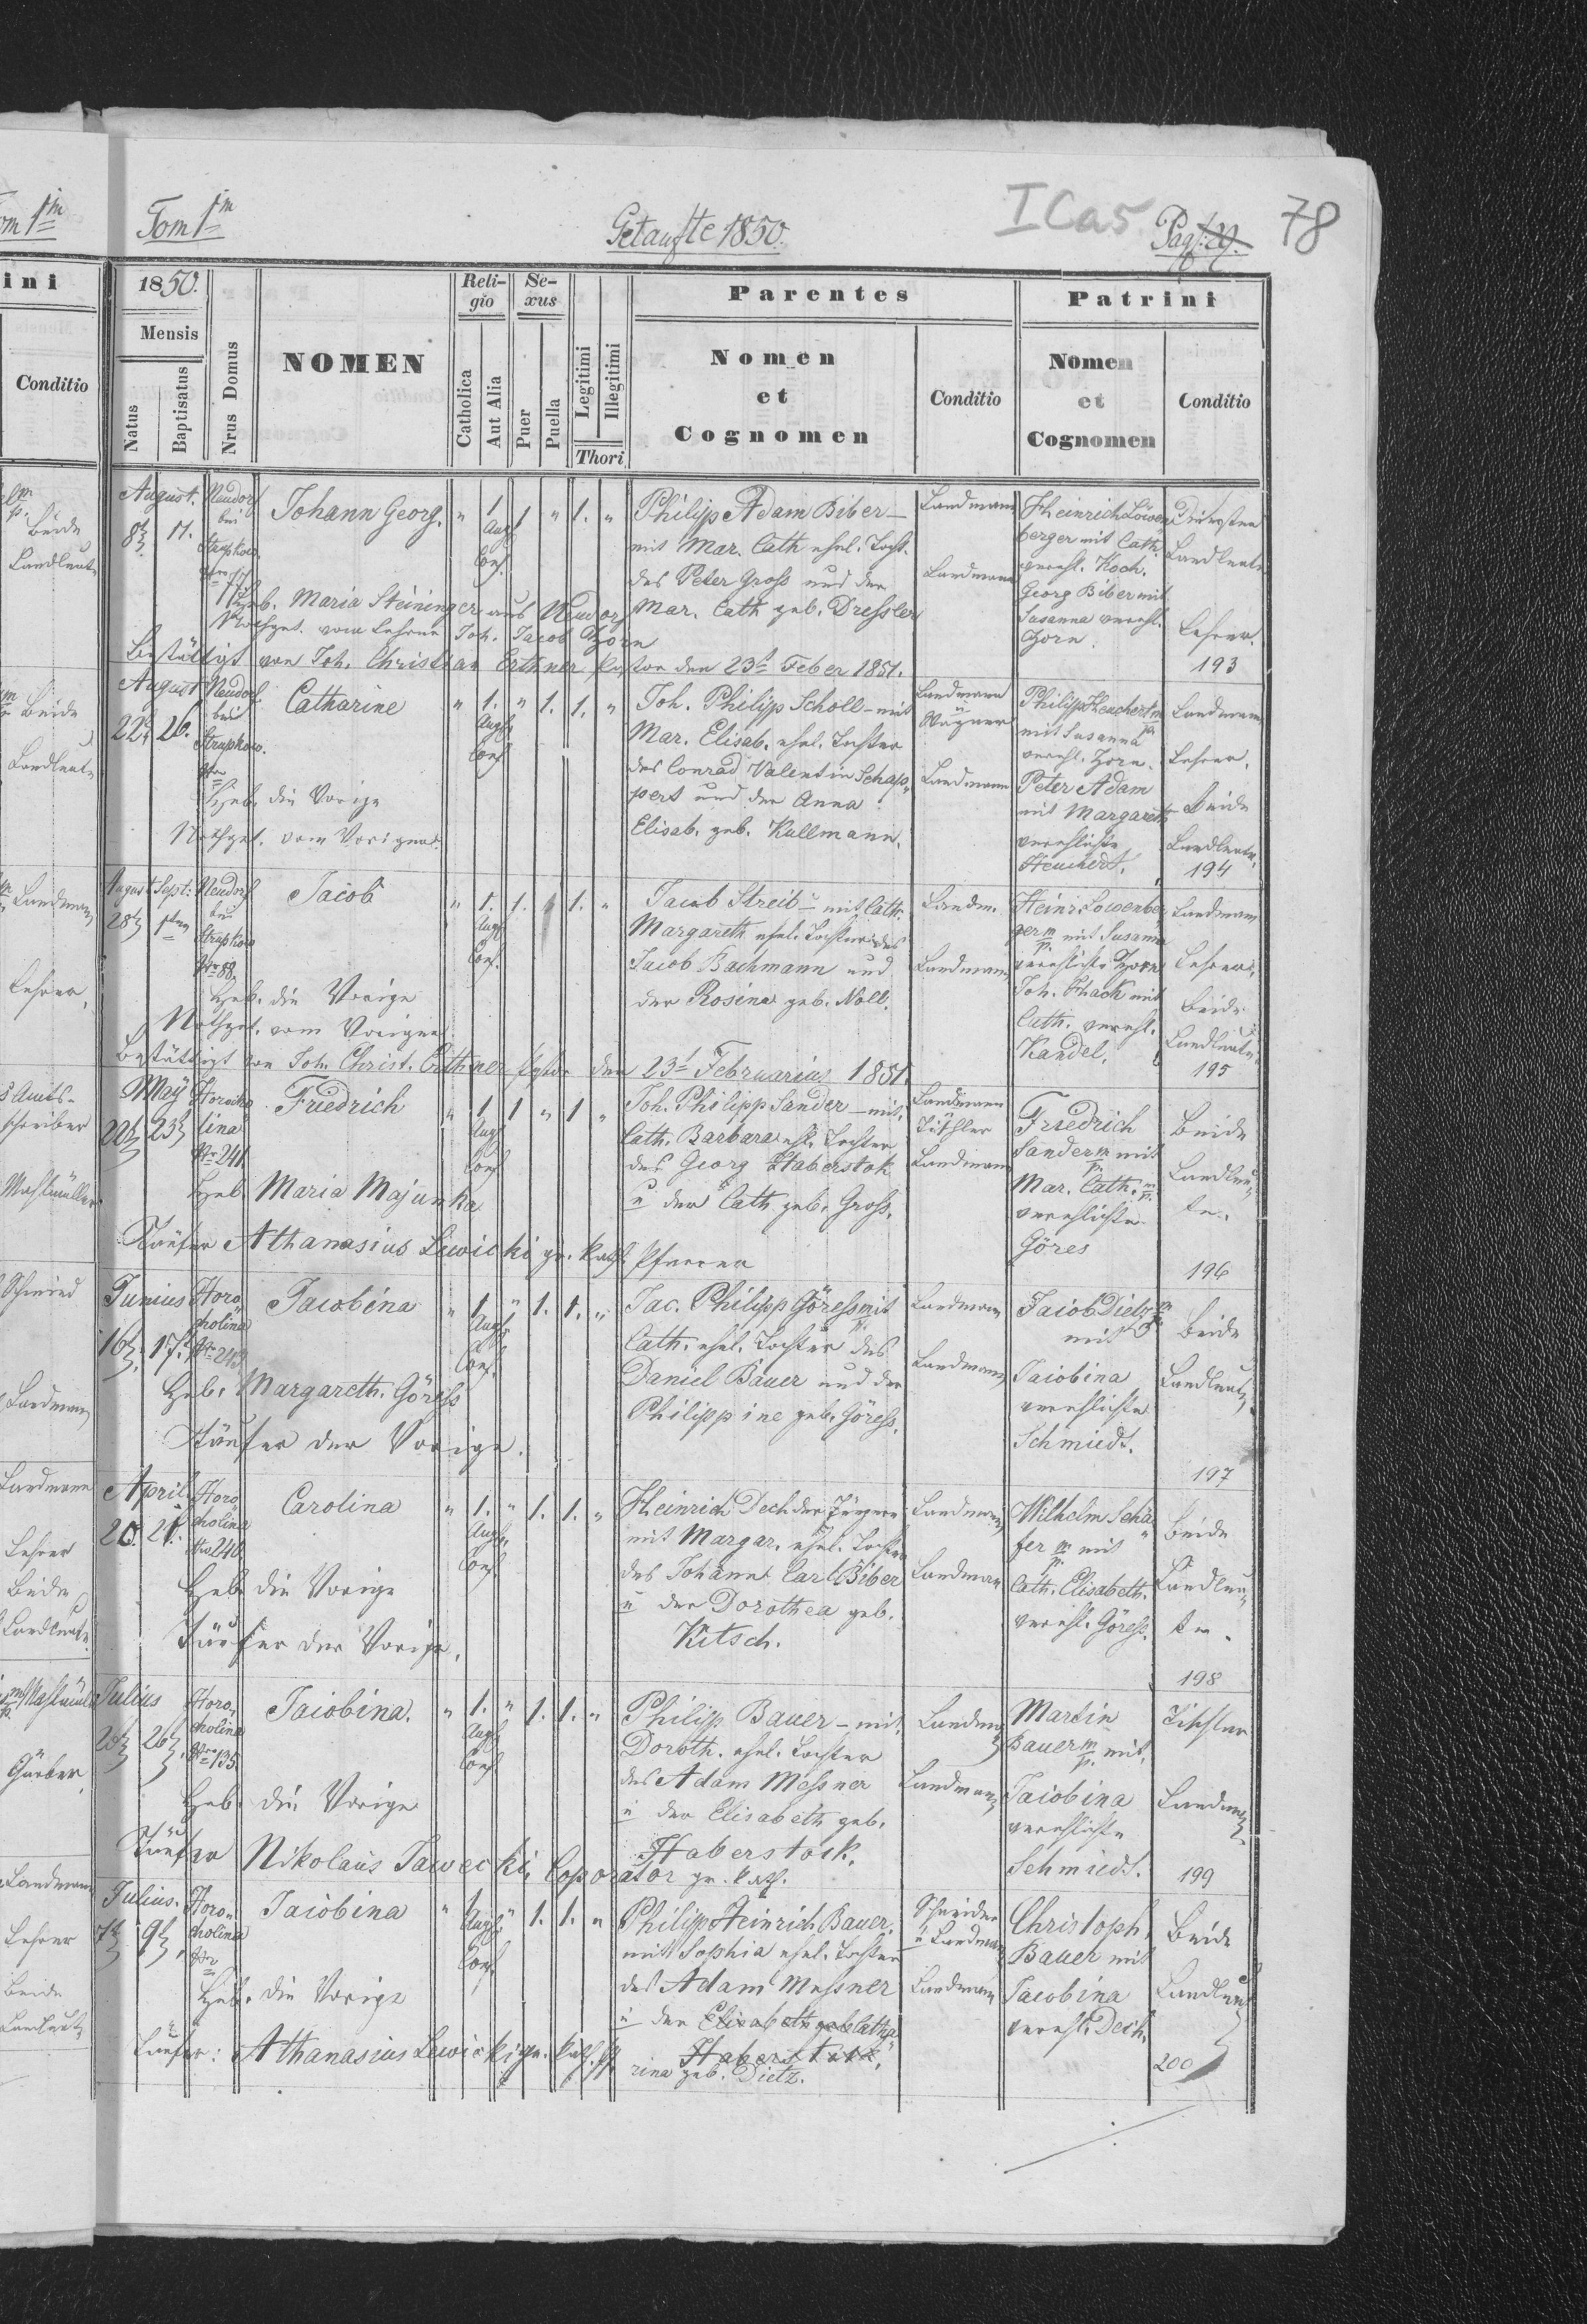 Tom 1m
Getaufte 1850.
I Ca 5
Pag: 29.
78
1850.
Mensis
Natus
Baptisatus
Nrus Domus
NOMEN
Religio
Catholica
Aut Alia
Sexus
Puer
Puella
Legitimi
Illegitimi
Thori
Parentes
Nomen et Cognomen
Conditio
Patrini
Nomen et Cognomen
Conditio
August. 8t 11. Neudorf bei Strupkow
Johann Georg. " 1 Augs Conf. 1 " 1. "
Philipp Adam Biber –
mit Mar. Cath ehel. Tocht.
des Peter Gross und der
Mar. Cath geb. Dressler
Landmann
Landmann
Heinrich Löwen
berger mit Cath.
verehl. Koch.
Georg Biber mit
Susanna verehl.
Zorn
Landleute
Lehrer.
Heb. Maria Steininger aus Neudorf
Nothget. vom Lehrer Joh. Jacob Zorn
Bestättigt von Joh. Christian Erthner Pastor den 23t Feber 1851.
193
August 22t 26. Neudorf bei Strupkow.
Catharine " 1. Augs Conf " 1. 1. "
Joh. Philipp Scholl – mit
Mar. Elisab. ehel. Tochter
des Conrad Valentin Schap„
pert und der Anna
Elisab. geb. Kullmann.
Landmann u Wagner
Landmann
Philipp Heuchert mp
mit Susanna
verehl. Zorn.
Peter Adam
mit Margareth
verehlichte
Heuchert.
Landmann
Lehrer.
Beide
Landleute.
Heb. die Vorige
Nothget. vom Vorigen.
194
August 28t Sept: 1ten Neudorf bei Strupkow Nro 88.
Jacob " 1. Augs Conf. 1. 1. "
Jacob Streib – mit Cath.
Margareth ehel. Tochter des
Jacob Bachmann und
der Rosina geb. Noll.
Landm.
Landmann
Heinr. Löwenber
ger mp. mit Susanna
verehlichte Zorn
Joh. Schack mit
Cath. verehl.
Kandel.
Landmann
Lehrer.
Beide
Landleute.
Heb. die Vorige
Nothget. vom Vorigen
Bestättigt von Joh. Christ. Erthner Pastor den 23t Februarius 1851.
195
May 20t 23t Horocholina Nro 241.
Friedrich " 1 Augs Conf 1 " 1 "
Joh. Philipp Sander – mit
Cath. Barbara ehl. Tochter
des Georg Haberstok
u der Cath geb. Gross.
Landmann Tischler
Landmann
Friedrich
Sander mp mit
Mar. Cath. mp.
verehlichte
Göres
Beide
Landleu„
te.
Heb. Maria Majunka
Täufer Athanasius Lewicki gr. kath Pfarrer
196
Junius 16t 17t Horo„cholina Nro 243
Jacobina " 1. Augs Conf. " 1. 1. "
Jac. Philipp Göress mit
Cath. ehel. Tochter des
Daniel Bauer und der
Philippine geb. Göress.
Landmann
Landmann
Jacob Dietz mp
mit
Jacobina
verehlichte
Schmiedt.
Beide
Landleute
Heb. Margareth. Göress
Täufer der Vorige.
197
April 20. 21. Horo„cholina Nro 240
Carolina " 1. Augs. Conf. " 1. 1. "
Heinrich Dech der Jüngere
mit Margar. ehel. Tochter
des Johann Carl Biber
u der Dorothea geb.
Kitsch.
Landmann
Landmann
Wilhelm Schä„
fer mp mit
Cath. Elisabeth.
verehl. Göress.
Beide
Landleu„
te.
Heb. die Vorige
Täufer der Vorige.
198
Julius 26t Horo„cholina Nro 135.
Jacobina. " 1. Augs Conf " 1. 1. "
Philipp Bauer – mit
Doroth. ehel. Tochter
des Adam Messner
u der Elisabeth geb.
Haberstock.
Landm
Landmann
Martin
Bauer mp. mit
Jacobina
verehlichte
Schmiedt.
Tischler
Landm
Heb. die Vorige
Täufer Nikolaus Sawecki Coporator gr. kath.
199
Julius. 7t 9t Horo„cholina Nro
Jacobina " 1 Augs Conf. " 1. 1. "
Philipp Heinrich Bauer.
mit Sophia ehel. Tochter
des Adam Messner
u der Elisabeth geb Catha
Haberstock,
rina geb. Dietz.
Schneider u Landmann
Landmann
Christoph
Bauer mit
Jacobina
verehl. Dech.
Beide
Landleut
Heb. die Vorige
Täufer: Athanasius Lewicki gr. kath. Pf
200